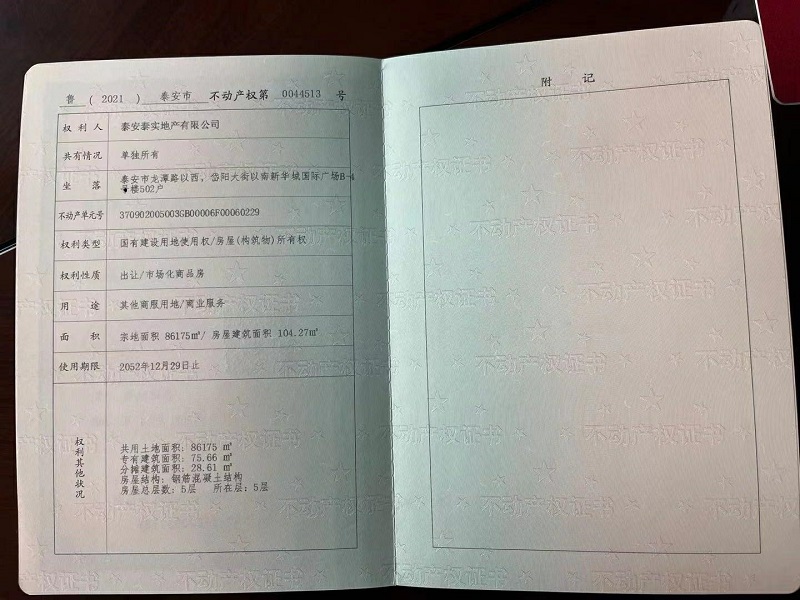 鲁 ( 2021 ) 泰安市 不动产权第 0044513 号
权利人 泰安泰实地产有限公司
共有情况 单独所有
坐落 泰安市龙潭路以西，岱阳大街以南新华城国际广场B-4
号楼502户
不动产单元号 370902005003GB00006F00060229
权利类型 国有建设用地使用权/房屋(构筑物)所有权
权利性质 出让/市场化商品房
用途 其他商服用地/商业服务
面积 宗地面积 86175㎡/ 房屋建筑面积 104.27㎡
使用期限 2052年12月29日止
权利其他状况
共用土地面积: 86175 ㎡
专有建筑面积: 75.66 ㎡
分摊建筑面积: 28.61 ㎡
房屋结构: 钢筋混凝土结构
房屋总层数: 5层 所在层: 5层
附记
不动产权证书